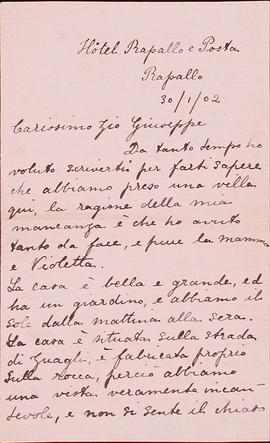 Hôtel Rapallo e Posta
Rapallo
30/1/02
Carissimo Zio Giuseppe
Da tanto tempo ho
voluto scriverti per farti sapere
che abbiamo preso una villa
qui, la ragione della mia
mancanza è che ho avuto
tanto da fare, e pure la mamma
e Violetta.
La casa è bella e grande, ed
ha un giardino, e abbiamo il
sole dalla mattina alla sera.
La casa è situata sulla strada
di Zuagli, è fabbricata proprio
sulla rocca, perciò abbiamo
una vista veramente incan-
tevole, e non si sente il chiaso